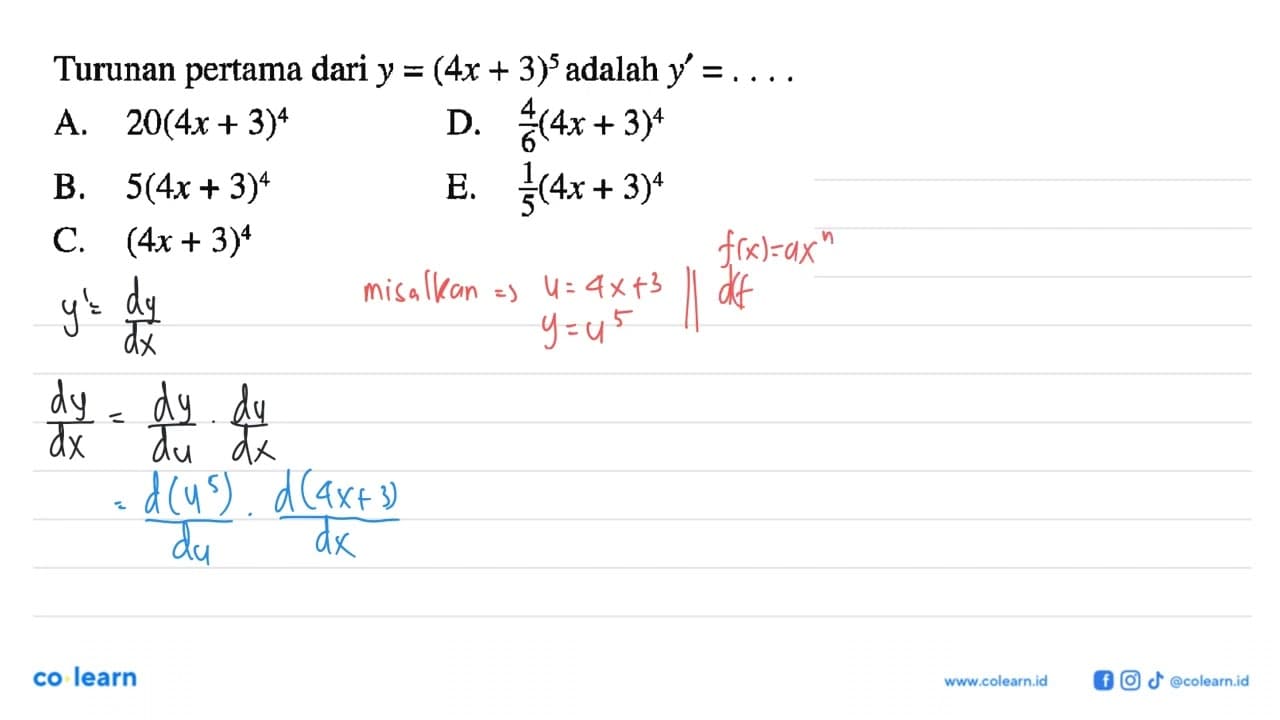 Turunan pertama dari y = (4x + 3)⁵ adalah y′ = . . . .
A. 20(4x + 3)⁴ D. 4/6(4x + 3)⁴
B. 5(4x + 3)⁴ E. 1/5(4x + 3)⁴
C. (4x + 3)⁴
f(x)=ax^n
misalkan => u = 4x+3 || df
y = u⁵
y' = dy/dx
dy/dx = dy/du . du/dx
= d(u⁵)/du . d(4x+3)/dx
co·learn www.colearn.id @colearn.id